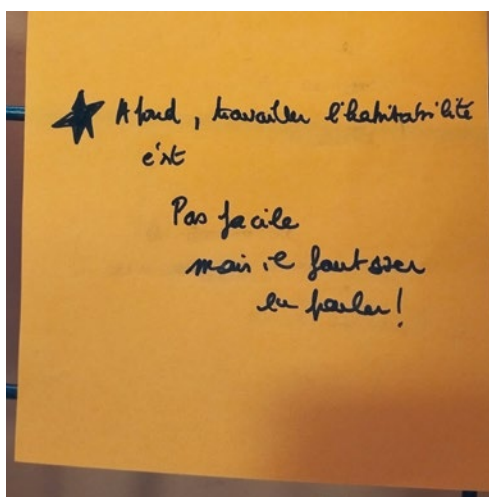 A fond, travailler l'habitabilité
c'est
Pas facile
mais il faut oser
en parler !